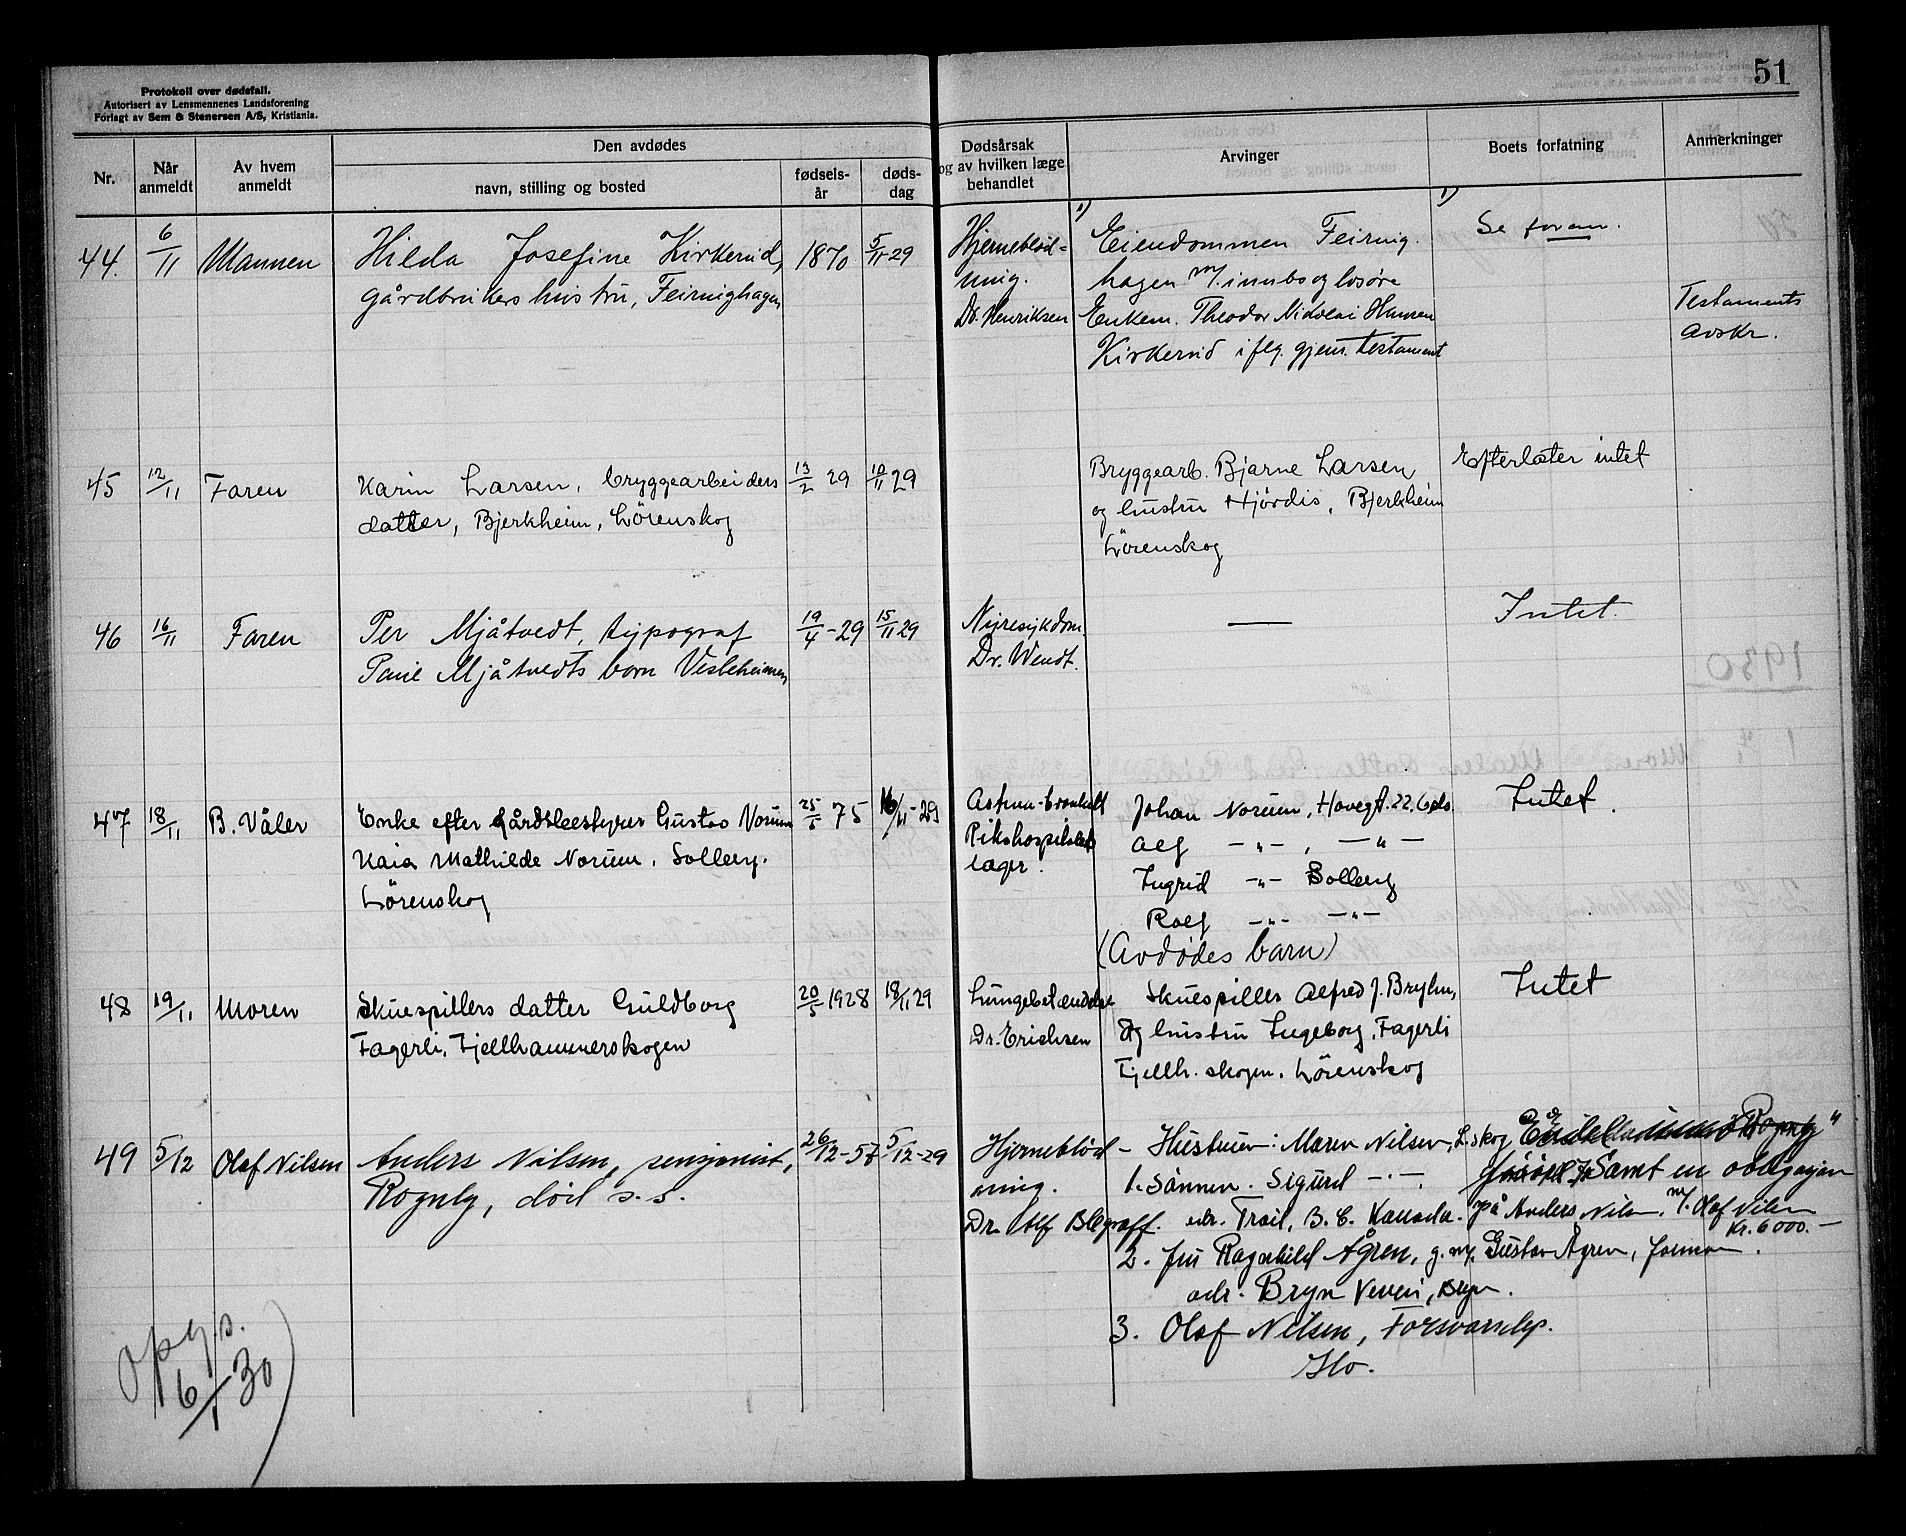 Protokoll over dødsfall.
Autorisert av Lensmennenes Landsforening
Forlagt av Sem & Stenersen A/S, Kristiania.
51
Nr.
Når anmeldt
Av hvem anmeldt
Den avdødes
navn, stilling og bosted
fødsels-år
døds-dag
Dødsårsak og av hvilken læge behandlet
Arvinger
Boets forfatning
Anmerkninger
44. 6/11 Mannen
Hilda Josefine Kirkerud, 1870 5/11-29
gårdbrukers hustru, Feiringhagen
Hjerneblød-
ning.
Dr. Henriksen
1) Eiendommen Feiring.
hagen m/. innbo og løsøre
Enkem. Theodor Nikolai Hansen
Kirkerud iflg. gjens. testament
1) Se foran.
Testaments
avskr.
45 12/11 Faren
Karin Larsen, bryggearbeiders 13/2 29 10/11 29
datter, Bjerkheim, Lörenskog
Bryggearb. Bjarne Larsen
og hustru Hjördis, Bjerkheim
Lörenskog
Efterlater intet
46 16/11 Faren
Per Mjåtvedt, typograf 19/4-29 15/11 29
Mjåtvedts barn Vesleheimen
Nyresykdom.
Dr. Wendt.
—
Intet.
47 18/11 B. Våler
Enke efter gårdsbestyrer Gustav Norum 25/5 75 16/11-29
Kaia Mathilde Norum, Solberg.
Lörenskog
Astma-bronkitt
Rikshospitalets
læger.
Johan Norum, Hovegt. 22. Oslo.
Alf -"-, -"-
Ingrid -"- Solberg
Rolf -"- -"-
(Avdødes barn)
Intet.
48 19/11 Moren
Skuespillers datter Guldborg 20/5 1928 18/11 29
Fagerli, Fjellhammerskogen
Lungebetændelse
Dr. Erichsen
Skuespiller Alfred J. Bryhn,
og hustru Ingeborg, Fagerli
Fjellh. skogen. Lörenskog
Intet
49 5/12 Olaf Nilsen
Anders Nilsen, pensjonist, 26/12-57 5/12-29
Rognly, död s. s.
Hjerneblöd-
ning.
Dr. Alf Blegraff.
Hustruen: Maren Nilsen, L.skog
1. Sönnen. Sigurd -"-
adr. Trail, B. C. Kanada.
2. fru Ragnhild Ågren, g. m/. Gustav Ågren, formann.
adr. Bryn Veveri, Bryn.
3. Olaf Nilsen, Forsvarsdep.
Slo.
Eiendommen "Rognly"
Samt en obligasjon
på Anders Nilsen, m/. Olaf Nilsen
Kr. 6000.-
opgs.
16/1 30